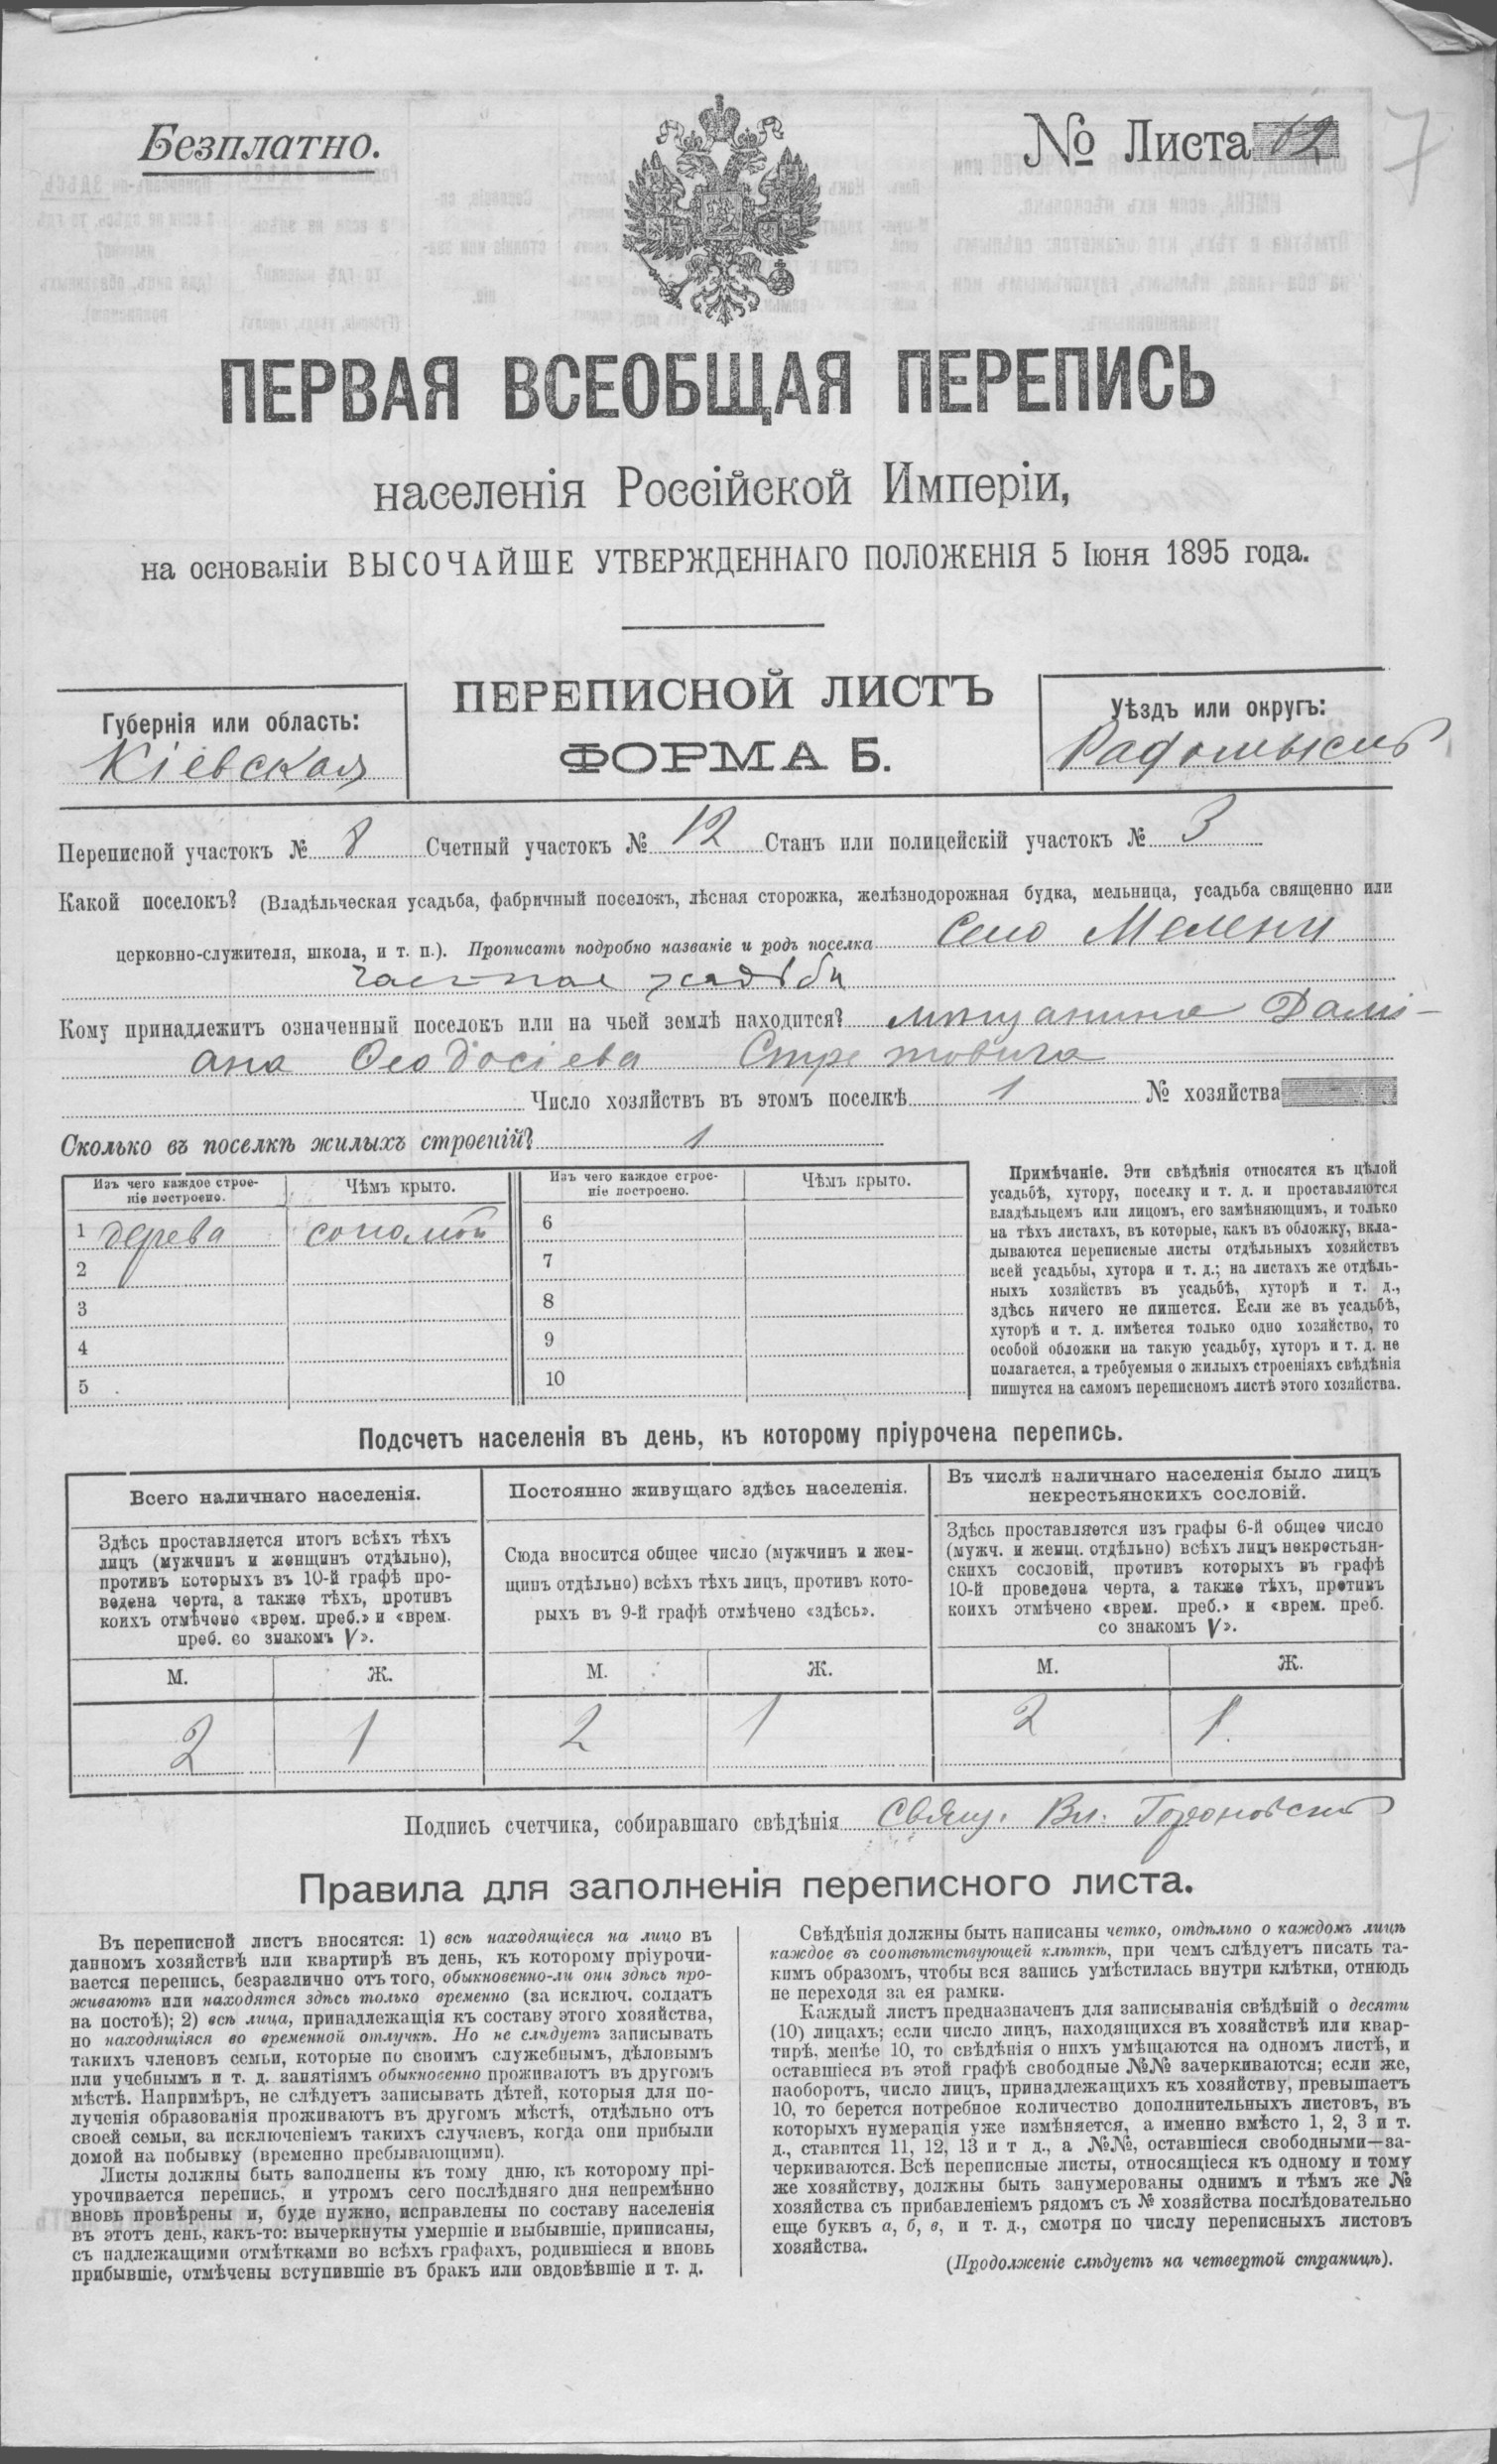 Безплатно.
№ Листа 12
7
ПЕРВАЯ ВСЕОБЩАЯ ПЕРЕПИСЬ
населенія Россійской Имперіи,
на основаніи ВЫСОЧАЙШЕ УТВЕРЖДЕННАГО ПОЛОЖЕНІЯ 5 Іюня 1895 года.
Губернія или область:
Кіевская
ПЕРЕПИСНОЙ ЛИСТЪ
ФОРМА Б.
Уѣздъ или округъ:
Радомысль
Переписной участокъ № 8 Счетный участокъ № 12 Станъ или полицейскій участокъ № 3
Какой поселокъ? (Владѣльческая усадьба, фабричный поселокъ, лѣсная сторожка, желѣзнодорожная будка, мельница, усадьба священно или
церковно-служителя, школа, и т. п.). Прописать подробно названіе и родъ поселка Село Мелени
частная усадьба
Кому принадлежитъ означенный поселокъ или на чьей землѣ находится? мѣщанина Дамі-
ана Ѳеодосіева
Число хозяйствъ въ этомъ поселкѣ 1 № хозяйства
Сколько въ поселкѣ жилыхъ строеній? 1
Изъ чего каждое строе-
ніе построено.
Чѣмъ крыто.
Изъ чего каждое строе-
ніе построено.
Чѣмъ крыто.
1 дерева соломой 6
2 7
3 8
4 9
5 10
Примѣчаніе. Эти свѣдѣнія относятся къ цѣлой
усадьбѣ, хутору, поселку и т. д. и проставляются
владѣльцемъ или лицомъ, его замѣняющимъ, и только
на тѣхъ листахъ, въ которые, какъ въ обложку, вкла-
дываются переписные листы отдѣльныхъ хозяйствъ
всей усадьбы, хутора и т. д.; на листахъ же отдѣль-
ныхъ хозяйствъ въ усадьбѣ, хуторѣ и т. д.,
здѣсь ничего не пишется. Если же въ усадьбѣ,
хуторѣ и т. д. имѣется только одно хозяйство, то
особой обложки на такую усадьбу, хуторъ и т. д. не
полагается, а требуемыя о жилыхъ строеніяхъ свѣдѣнія
пишутся на самомъ переписномъ листѣ этого хозяйства.
Подсчетъ населенія въ день, къ которому пріурочена перепись.
Всего наличнаго населенія.
Здѣсь проставляется итогъ всѣхъ тѣхъ
лицъ (мужчинъ и женщинъ отдѣльно),
противъ которыхъ въ 10-й графѣ про-
ведена черта, а также тѣхъ, противъ
коихъ отмѣчено «врем. преб.» и «врем.
преб. со знакомъ V».
М. Ж.
2 1
Постоянно живущаго здѣсь населенія.
Сюда вносится общее число (мужчинъ и жен-
щинъ отдѣльно) всѣхъ тѣхъ лицъ, противъ кото-
рыхъ въ 9-й графѣ отмѣчено «здѣсь».
М. Ж.
2 1
Въ числѣ наличнаго населенія было лицъ
некрестьянскихъ сословій.
Здѣсь проставляется изъ графы 6-й общее число
(мужч. и женщ. отдѣльно) всѣхъ лицъ некрестьян-
скихъ сословій, противъ которыхъ въ графѣ
10-й проведена черта, а также тѣхъ, противъ
коихъ отмѣчено «врем. преб.» и «врем. преб.
со знакомъ V».
М. Ж.
2 1
Подпись счетчика, собиравшаго свѣдѣнія Свящ. Вл.
Правила для заполненія переписного листа.
Въ переписной листъ вносятся: 1) всѣ находящіеся на лицо въ
данномъ хозяйствѣ или квартирѣ въ день, къ которому пріурочи-
вается перепись, безразлично отъ того, обыкновенно-ли они здѣсь про-
живаютъ или находятся здѣсь только временно (за исключ. солдатъ
на постоѣ); 2) всѣ лица, принадлежащія къ составу этого хозяйства,
но находящіяся во временной отлучкѣ. Но не слѣдуетъ записывать
такихъ членовъ семьи, которые по своимъ служебнымъ, дѣловымъ
или учебнымъ и т. д. занятіямъ обыкновенно проживаютъ въ другомъ
мѣстѣ. Напримѣръ, не слѣдуетъ записывать дѣтей, которыя для по-
лученія образованія проживаютъ въ другомъ мѣстѣ, отдѣльно отъ
своей семьи, за исключеніемъ такихъ случаевъ, когда они прибыли
домой на побывку (временно пребывающими).
Листы должны быть заполнены къ тому дню, къ которому прі-
урочивается перепись, и утромъ сего послѣдняго дня непремѣнно
вновь провѣрены и, буде нужно, исправлены по составу населенія
въ этотъ день, какъ-то: вычеркнуты умершіе и выбывшіе, приписаны,
съ надлежащими отмѣтками во всѣхъ графахъ, родившіеся и вновь
прибывшіе, отмѣчены вступившіе въ бракъ или овдовѣвшіе и т. д.
Свѣдѣнія должны быть написаны четко, отдѣльно о каждомъ лицѣ
каждое въ соотвѣтствующей клѣткѣ, при чемъ слѣдуетъ писать та-
кимъ образомъ, чтобы вся запись умѣстилась внутри клѣтки, отнюдь
не переходя за ея рамки.
Каждый листъ предназначенъ для записыванія свѣдѣній о десяти
(10) лицахъ; если число лицъ, находящихся въ хозяйствѣ или квар-
тирѣ, менѣе 10, то свѣдѣнія о нихъ умѣщаются на одномъ листѣ, и
оставшіеся въ этой графѣ свободные №№ зачеркиваются; если же,
наоборотъ, число лицъ, принадлежащихъ къ хозяйству, превышаетъ
10, то берется потребное количество дополнительныхъ листовъ, въ
которыхъ нумерація уже измѣняется, а именно вмѣсто 1, 2, 3 и т.
д., ставится 11, 12, 13 и т д., а №№, оставшіеся свободными—за-
черкиваются. Всѣ переписные листы, относящіеся къ одному и тому
же хозяйству, должны быть занумерованы однимъ и тѣмъ же №
хозяйства съ прибавленіемъ рядомъ съ № хозяйства послѣдовательно
еще буквъ а, б, в, и т. д., смотря по числу переписныхъ листовъ
хозяйства.
(Продолженіе слѣдуетъ на четвертой страницѣ).